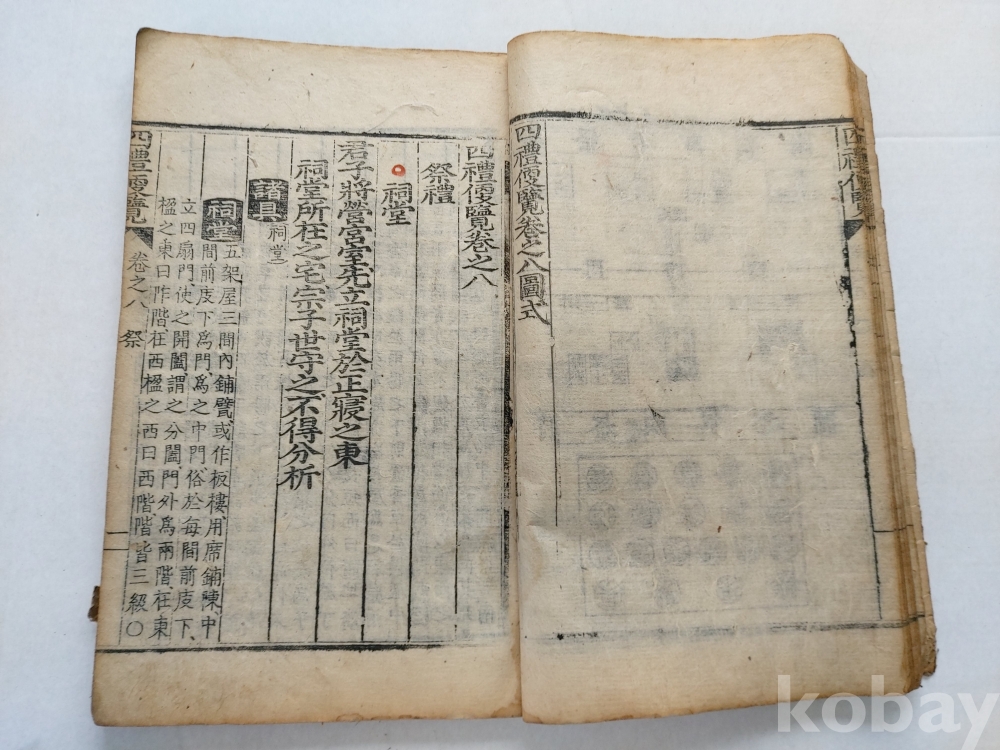 四禮便覽
四禮便覽卷之八圖式
四禮便覽卷之八
祭禮
祠堂
君子將營宮室先立祠堂於正寢之東
祠堂所在之宅宗子世守之不得分析
諸具祠堂
祠堂五架屋三間內鋪甓或作板樓用席鋪陳中
間前庋下爲門爲之中門俗於每間前庋下
立四扇門使之開闔謂之分闔門外爲兩階在東
楹之東曰阼階在西楹之西曰西階階皆三級〇
四禮便覽 卷之八 祭
kobay